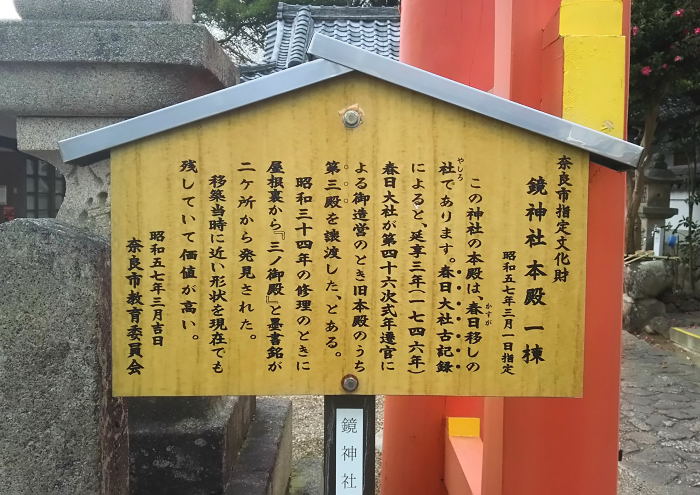 奈良市指定文化財
鏡神社本殿 一棟
昭和五七年三月一日指定
この神社の本殿は、春日移しの
社であります。春日大社古記録
によると、延享三年（一七四六年）
春日大社が第四十六次式年遷宮に
よる御造営のとき旧本殿のうち
第三殿を譲渡した、とある。
昭和三十四年の修理のときに
屋根裏から『三ノ御殿』と墨書銘が
二ケ所から発見された。
移築当時に近い形状を現在でも
残していて価値が高い。
昭和五七年三月吉日
奈良市教育委員会
かすが
やしろ
鏡神社